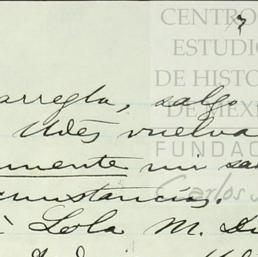 7
CENTRO
ESTUDI
DE HISTO
DE MÉXI
FUNDAC
Carlos S
arregla, salgo
Udes vuelva
mente mi sa
cunstancias.
à Lola M. Du